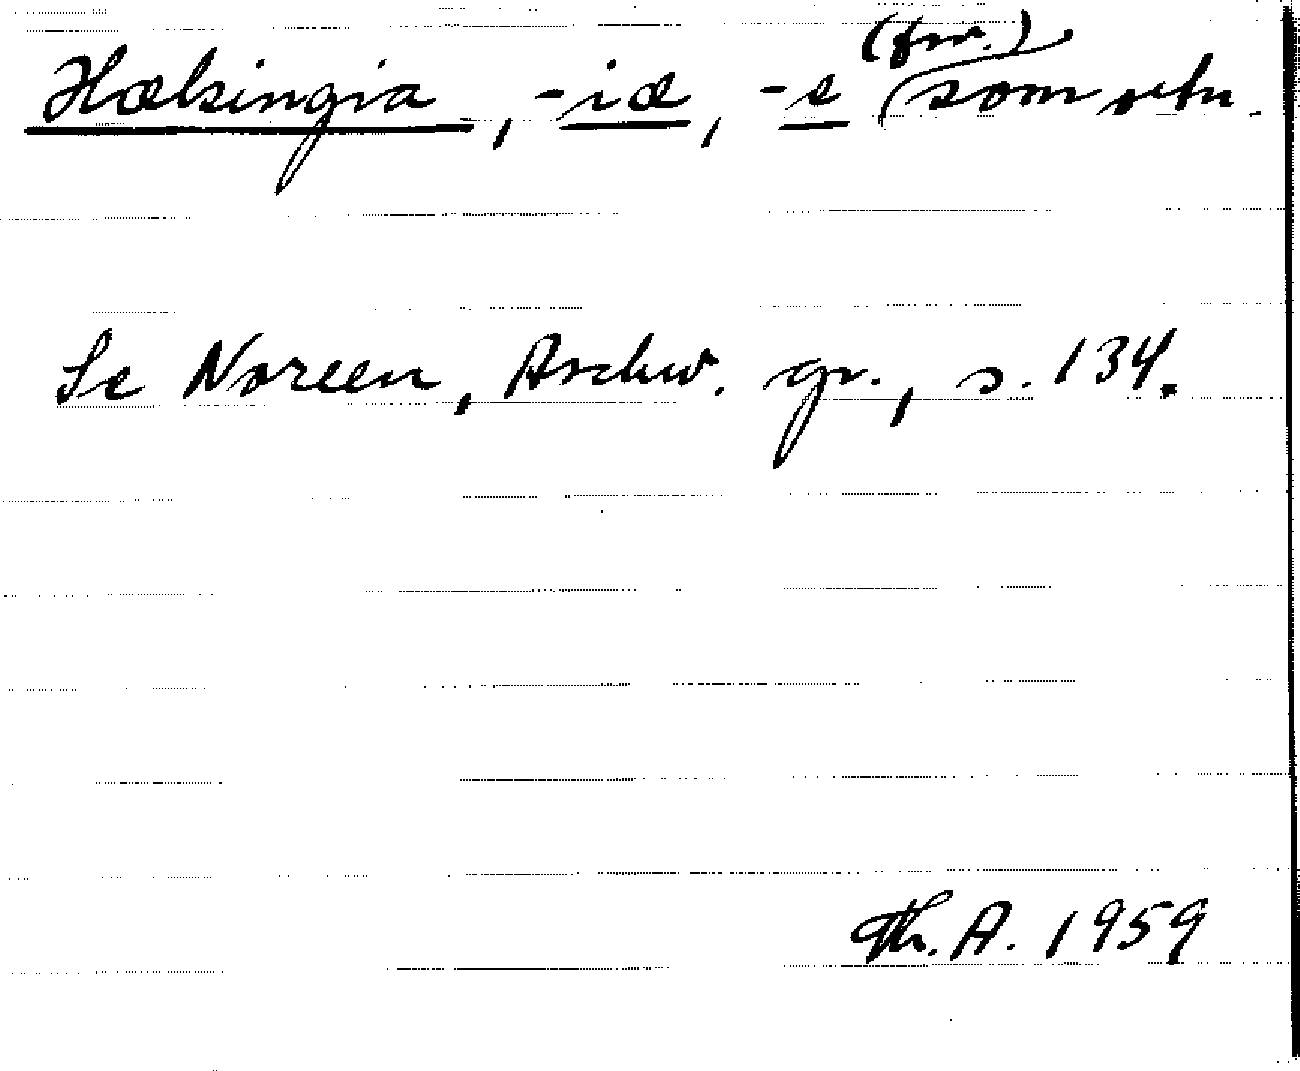 Hælsingia, -iæ, -e (fnr.) som ortn.
Se Noreen, Aschw. gr., s. 134.
Th. A. 1959